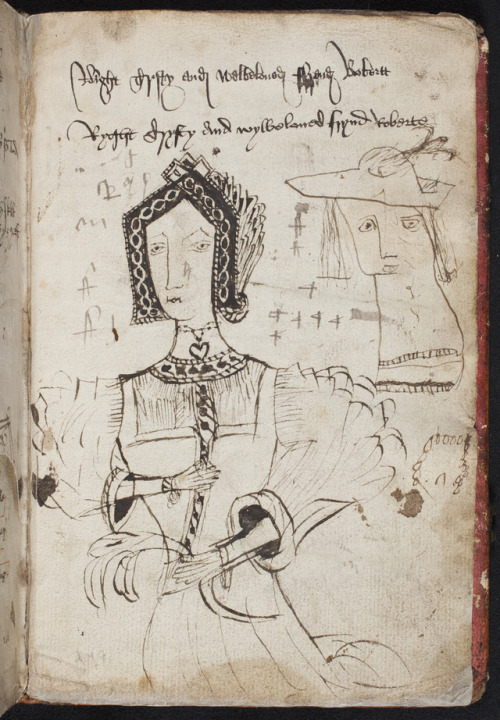 Right trysty and welbeloved frend Robertt
Ryght trysty and wylbeloued frynd Roberte